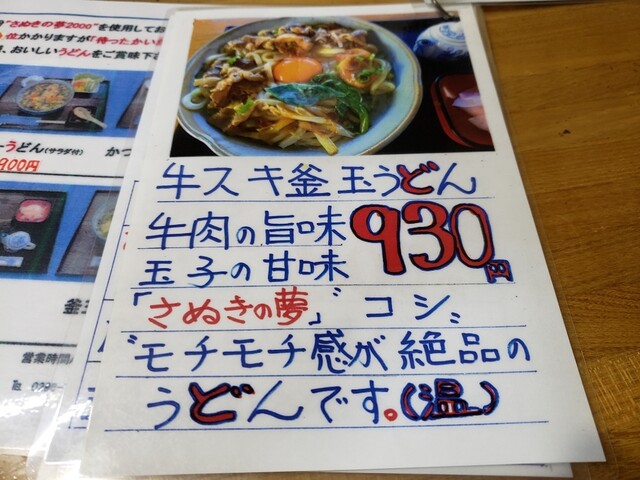 "さぬきの夢2000"を使用してお
位かかりますが「待ったかい
、おいしいうどんをご賞味下
うどん(サラダ付)
900円
かつ
釜玉
営業時間
℡ 0298-
牛スキ釜玉うどん
牛肉の旨味
930円
玉子の甘味
「さぬきの夢」〟コシ〟
〟モチモチ感が絶品の
うどんです。(温)